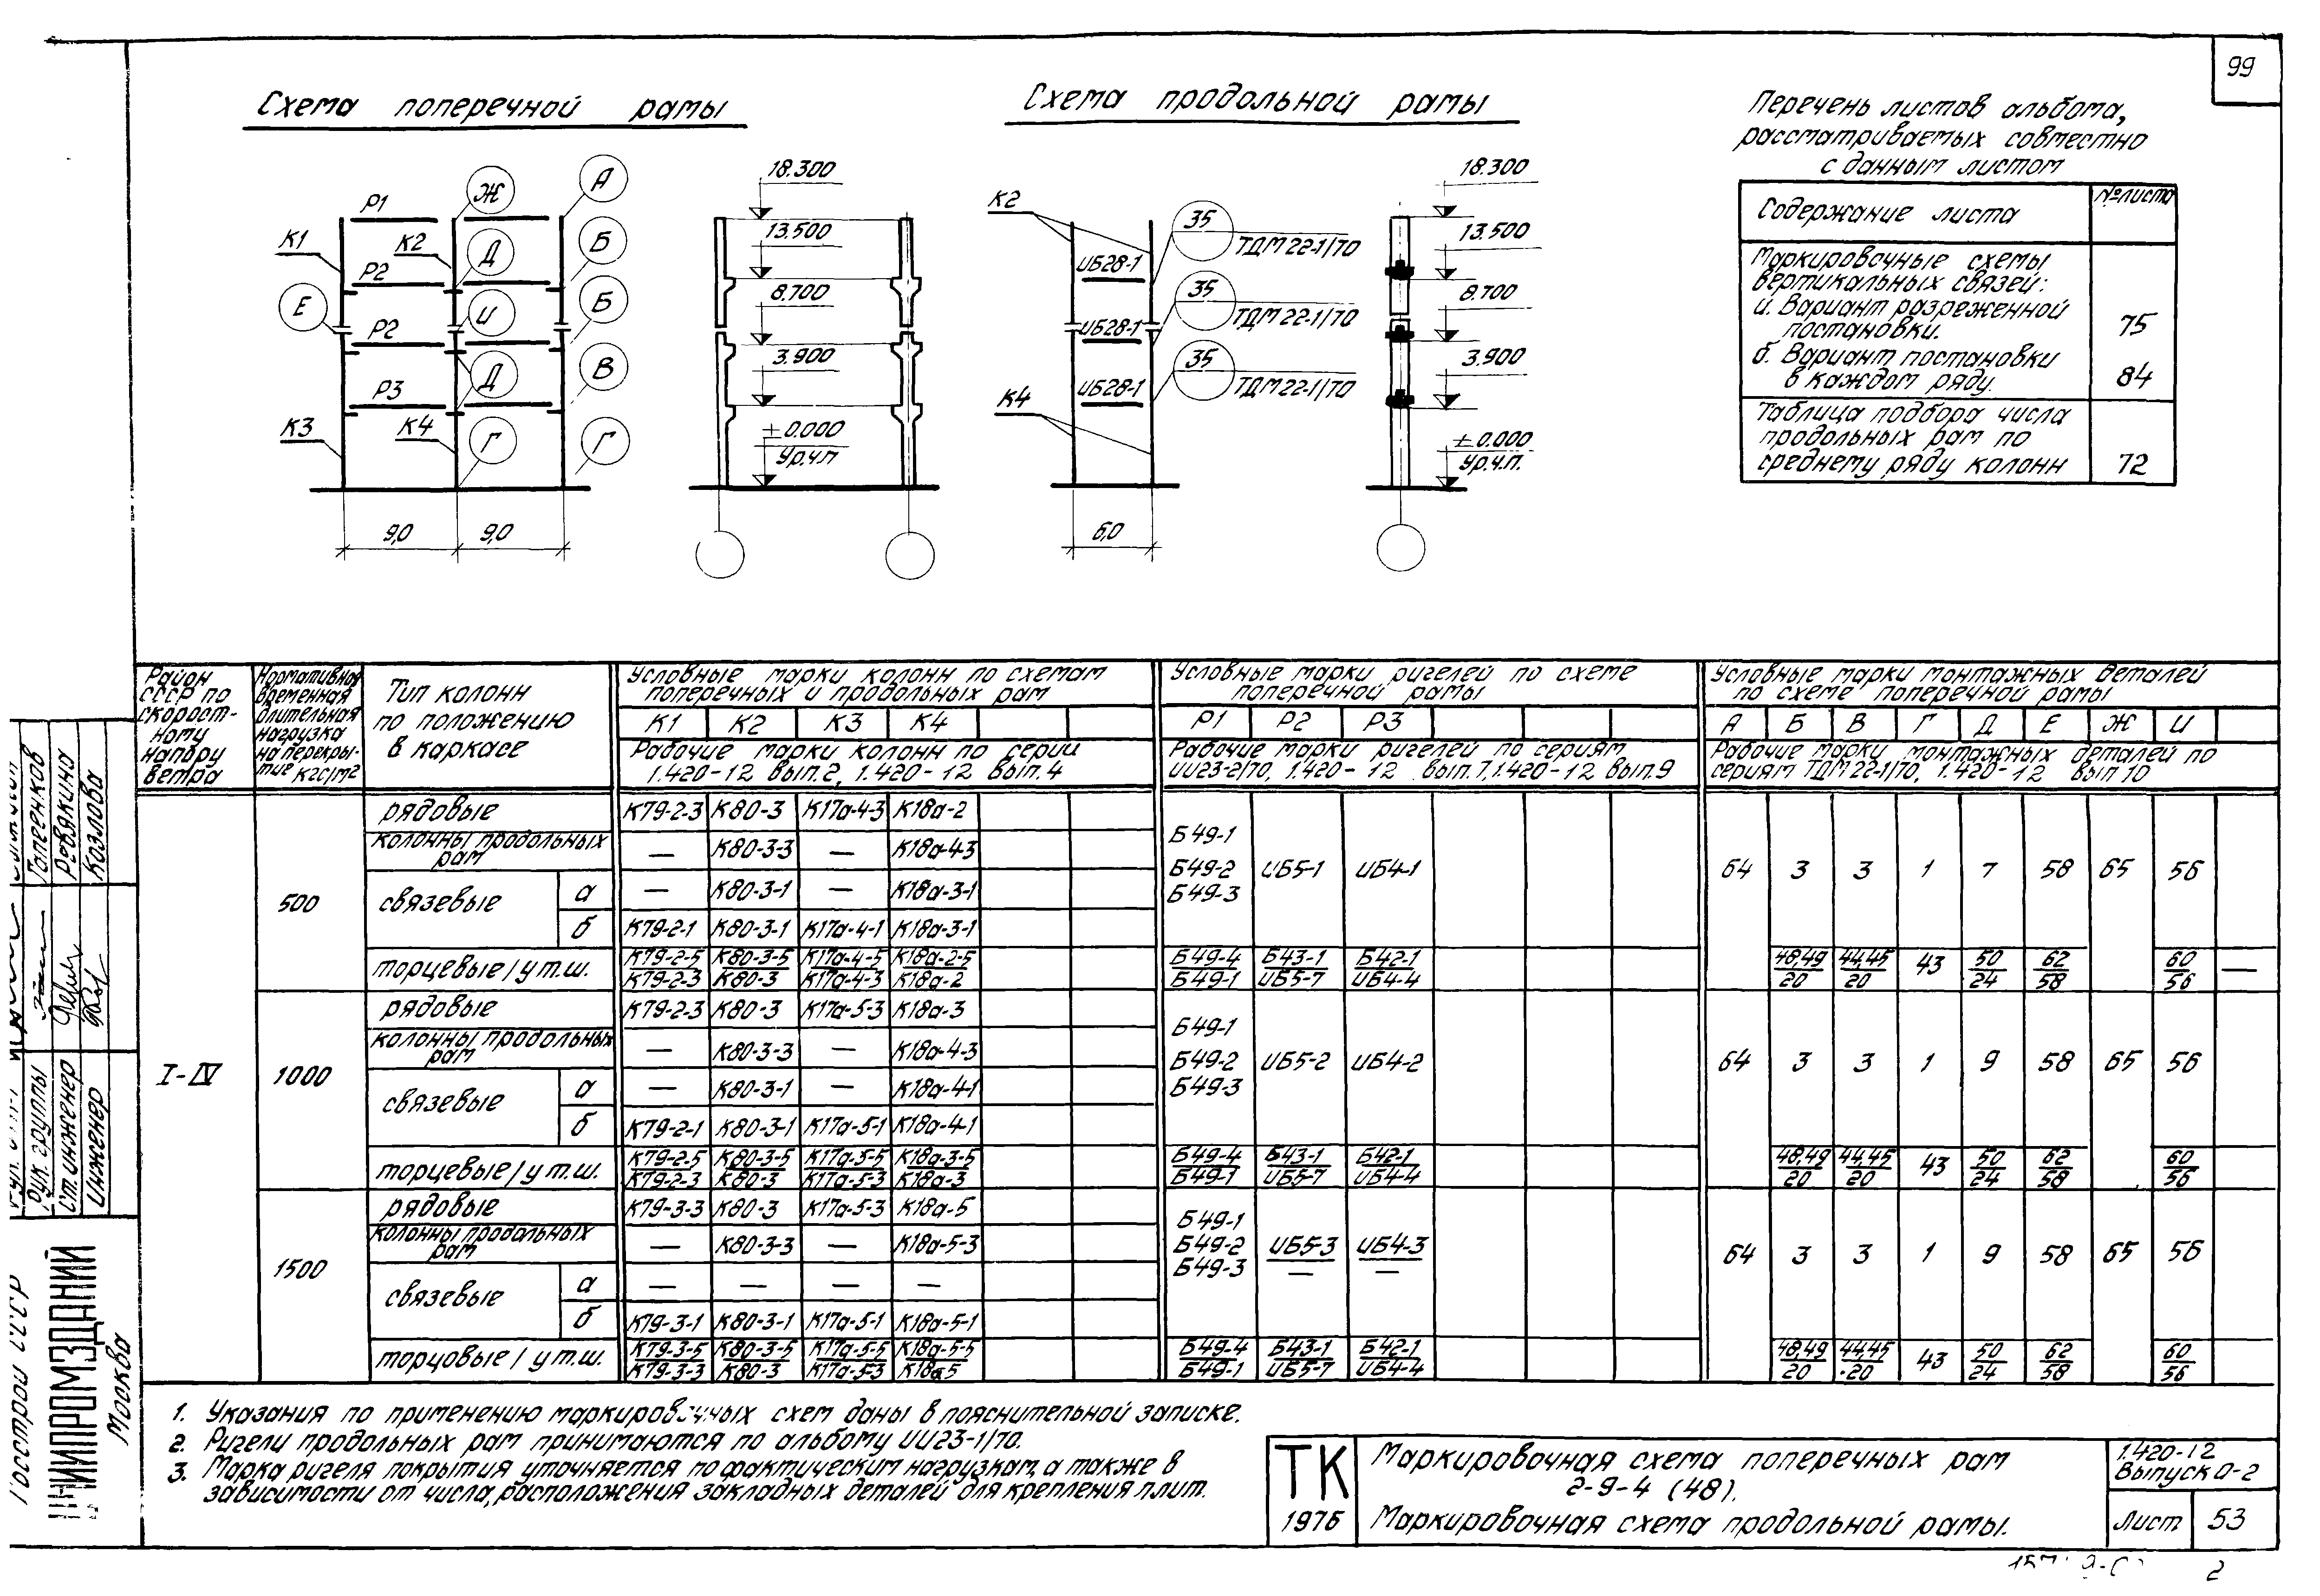 99
Схема поперечной рамы
Схема продольной рамы
Перечень листов альбома,
рассматриваемых совместно
с данным листом
Содержание листа
№ листа
Маркировочные схемы
вертикальных связей:
а. Вариант разреженной
постановки.
75
б. Вариант постановки
в каждом ряду.
84
Таблица подбора числа
продольных рам по
среднему ряду колонн
72
Р1
Ж
А
К1
К2
Д
Б
Р2
Е
И
Б
Р2
Д
В
Р3
К3
К4
Г
Г
9,0
9,0
18.300
13.500
8.700
3.900
±0.000
Ур.ч.п
К2
35
ТДМ 22-1/70
ИБ28-1
35
ТДМ 22-1/70
ИБ28-1
35
ТДМ 22-1/70
ИБ28-1
К4
6,0
18.300
13.500
8.700
3.900
±0.000
Ур.ч.п.
Район СССР по скоростному напору ветра
Нормативная временная длительная нагрузка на перекрытие кгс/м2
Тип колонн по положению в каркасе
Условные марки колонн по схемам
поперечных и продольных рам
К1 К2 К3 К4
Рабочие марки колонн по серии
1.420-12 вып.2, 1.420-12 вып.4
Условные марки ригелей по схеме
поперечной рамы
Р1 Р2 Р3
Рабочие марки ригелей по сериям
ИИ23-2/70, 1.420-12 вып.7, 1.420-12 вып.9
Условные марки монтажных деталей
по схеме поперечной рамы
А Б В Г Д Е Ж И
Рабочие марки монтажных деталей по
сериям ТДМ 22-1/70, 1.420-12 вып 10
I-IV
500
рядовые К79-2-3 К80-3 К17а-4-3 К18а-2
колонны продольных рам — К80-3-3 — К18а-4-3
связевые а — К80-3-1 — К18а-3-1
б К79-2-1 К80-3-1 К17а-4-1 К18а-3-1
Б49-1
Б49-2 ИБ5-1 ИБ4-1
Б49-3
64 3 3 1 7 58 65 56
торцевые / у т.ш. К79-2-5 К80-3-5 К17а-4-5 К18а-2-5 Б49-4 Б43-1 Б42-1 48,49 44,45 43 50 62 60 —
К79-2-3 К80-3 К17а-4-3 К18а-2 Б49-1 ИБ5-7 ИБ4-4 20 20 24 58 56
1000
рядовые К79-2-3 К80-3 К17а-5-3 К18а-3
колонны продольных рам — К80-3-3 — К18а-4-3
связевые а — К80-3-1 — К18а-4-1
б К79-2-1 К80-3-1 К17а-5-1 К18а-4-1
Б49-1
Б49-2 ИБ5-2 ИБ4-2
Б49-3
64 3 3 1 9 58 65 56
торцевые / у т.ш. К79-2-5 К80-3-5 К17а-5-5 К18а-3-5 Б49-4 Б43-1 Б42-1 48,49 44,45 43 50 62 60
К79-2-3 К80-3 К17а-5-3 К18а-3 Б49-1 ИБ5-7 ИБ4-4 20 20 24 58 56
1500
рядовые К79-3-3 К80-3 К17а-5-3 К18а-5
колонны продольных рам — К80-3-3 — К18а-5-3
связевые а — — — —
б К79-3-1 К80-3-1 К17а-5-1 К18а-5-1
Б49-1
Б49-2 ИБ5-3 ИБ4-3
Б49-3 — —
64 3 3 1 9 58 65 56
торцовые / у т.ш. К79-3-5 К80-3-5 К17а-5-5 К18а-5-5 Б49-4 Б43-1 Б42-1 48,49 44,45 43 50 62 60
К79-3-3 К80-3 К17а-5-3 К18а5 Б49-1 ИБ5-7 ИБ4-4 20 20 24 58 56
1. Указания по применению маркировочных схем даны в пояснительной записке.
2. Ригели продольных рам принимаются по альбому ИИ23-1/70.
3. Марка ригеля покрытия уточняется по фактическим нагрузкам, а также в
зависимости от числа, расположения закладных деталей для крепления плит.
ТК
1976
Маркировочная схема поперечных рам
2-9-4 (48).
Маркировочная схема продольной рамы.
1.420-12
Выпуск 0-2
Лист 53
2
Госстрой СССР
ЦНИИПРОМЗДАНИЙ
Москва
Рук. группы
Ст. инженер
Инженер
Топеенков
Ревякина
Козлова